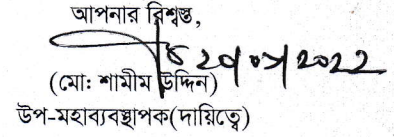 আপনার বিশ্বস্ত,
(মো: শামীম উদ্দিন)
উপ-মহাব্যবস্থাপক(দায়িত্বে)